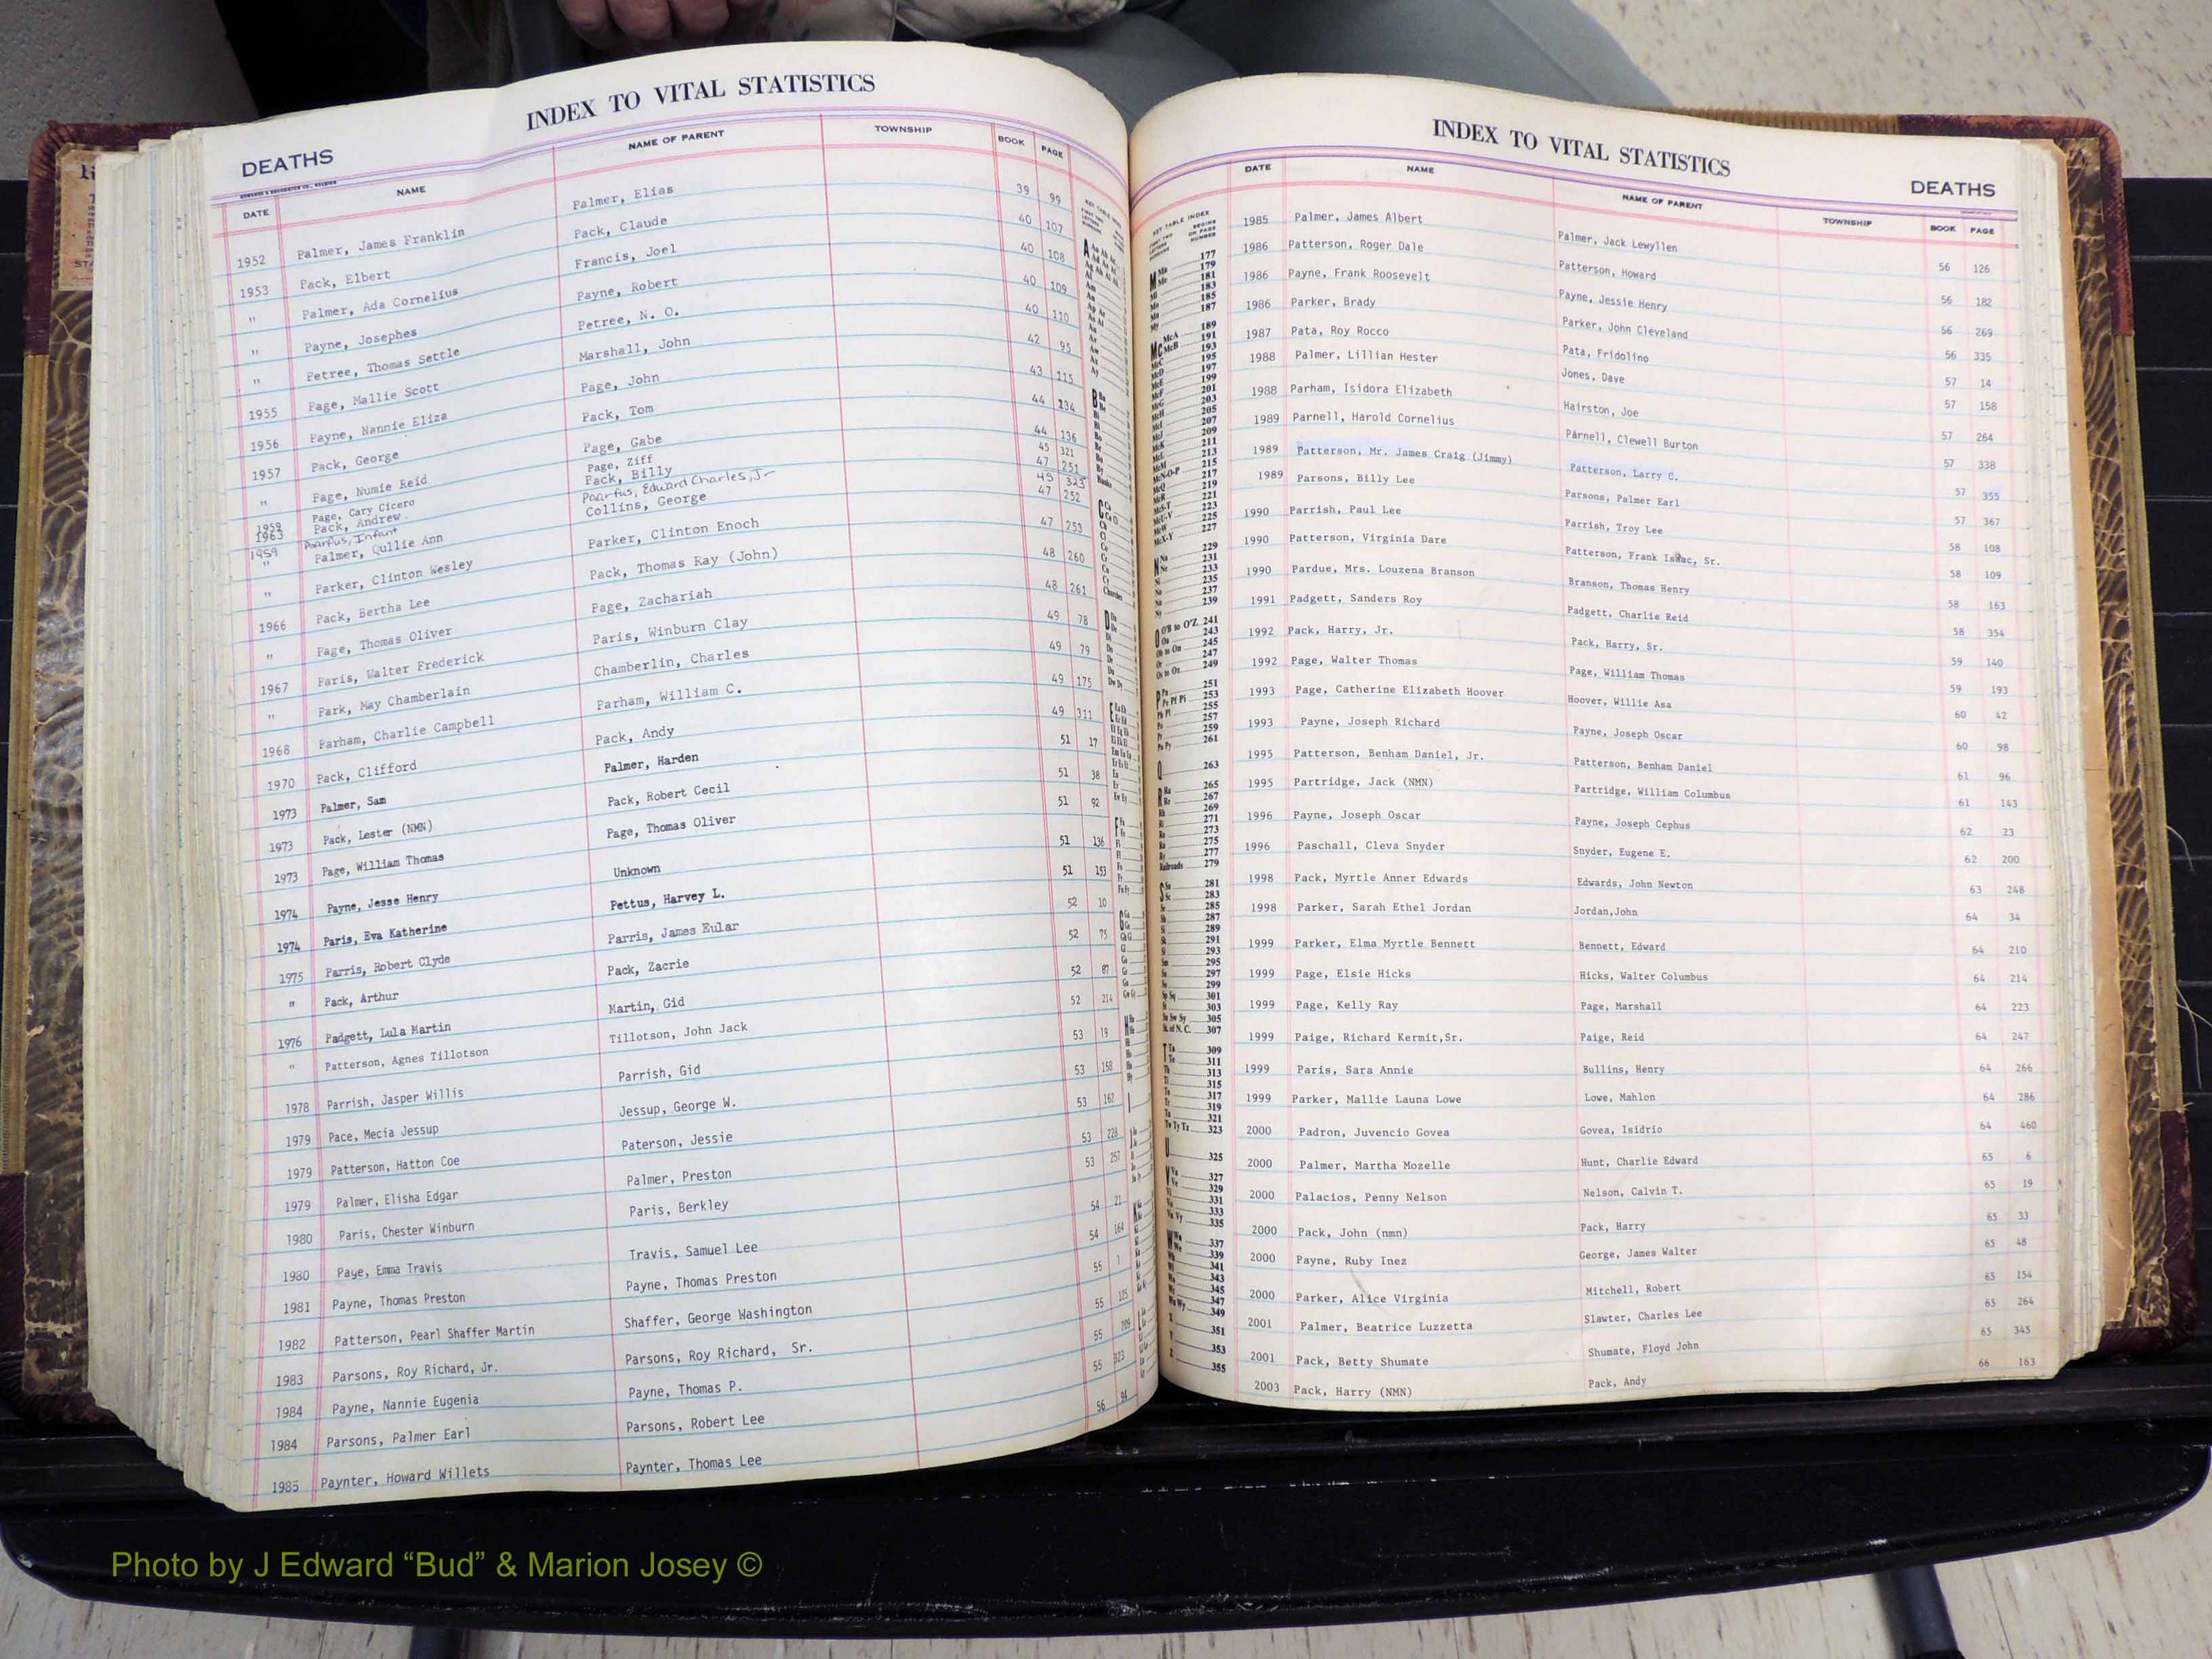 INDEX TO VITAL STATISTICS
DEATHS
DATE NAME NAME OF PARENT TOWNSHIP BOOK PAGE
1952 Palmer, James Franklin Palmer, Elias 39 99
1953 Pack, Elbert Pack, Claude 40 107
" Palmer, Ada Cornelius Francis, Joel 40 108
" Payne, Josephes Payne, Robert 40 109
" Petree, Thomas Settle Petree, N. O. 40 110
1955 Page, Mallie Scott Marshall, John 42 95
1956 Payne, Nannie Eliza Page, John 43 115
1957 Pack, George Pack, Tom 44 134
" Page, Numie Reid Page, Gabe 44 136
1959 Page, Cary Cicero Page, Ziff 45 321
1963 Pack, Andrew Pack, Billy 47 251
1959 Poarfus, Infant Poarfus, Edward Charles, Jr 45 323
" Palmer, Qullie Ann Collins, George 47 252
" Parker, Clinton Wesley Parker, Clinton Enoch 47 253
1966 Pack, Bertha Lee Pack, Thomas Ray (John) 48 260
" Page, Thomas Oliver Page, Zachariah 48 261
1967 Paris, Walter Frederick Paris, Winburn Clay 49 78
" Park, May Chamberlain Chamberlin, Charles 49 79
1968 Parham, Charlie Campbell Parham, William C. 49 175
1970 Pack, Clifford Pack, Andy 49 311
1973 Palmer, Sam Palmer, Harden 51 17
1973 Pack, Lester (NMN) Pack, Robert Cecil 51 38
1973 Page, William Thomas Page, Thomas Oliver 51 92
1974 Payne, Jesse Henry Unknown 51 136
1974 Paris, Eva Katherine Pettus, Harvey L. 51 153
1975 Parris, Robert Clyde Parris, James Eular 52 10
" Pack, Arthur Pack, Zacrie 52 75
1976 Padgett, Lula Martin Martin, Gid 52 87
" Patterson, Agnes Tillotson Tillotson, John Jack 52 214
1978 Parrish, Jasper Willis Parrish, Gid 53 19
1979 Pace, Mecia Jessup Jessup, George W. 53 158
1979 Patterson, Hatton Coe Paterson, Jessie 53 162
1979 Palmer, Elisha Edgar Palmer, Preston 53 228
1980 Paris, Chester Winburn Paris, Berkley 53 257
1980 Paye, Emma Travis Travis, Samuel Lee 54 21
1981 Payne, Thomas Preston Payne, Thomas Preston 54 164
1982 Patterson, Pearl Shaffer Martin Shaffer, George Washington 55 1
1983 Parsons, Roy Richard, Jr. Parsons, Roy Richard, Sr. 55 125
1984 Payne, Nannie Eugenia Payne, Thomas P. 55 209
1984 Parsons, Palmer Earl Parsons, Robert Lee 55 323
1985 Paynter, Howard Willets Paynter, Thomas Lee 56 94
INDEX TO VITAL STATISTICS
DEATHS
DATE NAME NAME OF PARENT TOWNSHIP BOOK PAGE
1985 Palmer, James Albert Palmer, Jack Lewyllen 56 126
1986 Patterson, Roger Dale Patterson, Howard 56 182
1986 Payne, Frank Roosevelt Payne, Jessie Henry 56 269
1986 Parker, Brady Parker, John Cleveland 56 335
1987 Pata, Roy Rocco Pata, Fridolino 57 14
1988 Palmer, Lillian Hester Jones, Dave 57 158
1988 Parham, Isidora Elizabeth Hairston, Joe 57 264
1989 Parnell, Harold Cornelius Parnell, Clewell Burton 57 338
1989 Patterson, Mr. James Craig (Jimmy) Patterson, Larry C. 57 355
1989 Parsons, Billy Lee Parsons, Palmer Earl 57 367
1990 Parrish, Paul Lee Parrish, Troy Lee 58 108
1990 Patterson, Virginia Dare Patterson, Frank Isaac, Sr. 58 109
1990 Pardue, Mrs. Louzena Branson Branson, Thomas Henry 58 163
1991 Padgett, Sanders Roy Padgett, Charlie Reid 58 354
1992 Pack, Harry, Jr. Pack, Harry, Sr. 59 140
1992 Page, Walter Thomas Page, William Thomas 59 193
1993 Page, Catherine Elizabeth Hoover Hoover, Willie Asa 60 42
1993 Payne, Joseph Richard Payne, Joseph Oscar 60 98
1995 Patterson, Benham Daniel, Jr. Patterson, Benham Daniel 61 96
1995 Partridge, Jack (NMN) Partridge, William Columbus 61 143
1996 Payne, Joseph Oscar Payne, Joseph Cephus 62 23
1996 Paschall, Cleva Snyder Snyder, Eugene E. 62 200
1998 Pack, Myrtle Anner Edwards Edwards, John Newton 63 248
1998 Parker, Sarah Ethel Jordan Jordan,John 64 34
1999 Parker, Elma Myrtle Bennett Bennett, Edward 64 210
1999 Page, Elsie Hicks Hicks, Walter Columbus 64 214
1999 Page, Kelly Ray Page, Marshall 64 223
1999 Paige, Richard Kermit,Sr. Paige, Reid 64 247
1999 Paris, Sara Annie Bullins, Henry 64 266
1999 Parker, Mallie Launa Lowe Lowe, Mahlon 64 286
2000 Padron, Juvencio Govea Govea, Isidrio 64 460
2000 Palmer, Martha Mozelle Hunt, Charlie Edward 65 6
2000 Palacios, Penny Nelson Nelson, Calvin T. 65 19
2000 Pack, John (nmn) Pack, Harry 65 33
2000 Payne, Ruby Inez George, James Walter 65 48
2000 Parker, Alice Virginia Mitchell, Robert 65 154
2001 Palmer, Beatrice Luzzetta Slawter, Charles Lee 65 264
2001 Pack, Betty Shumate Shumate, Floyd John 65 345
2003 Pack, Harry (NMN) Pack, Andy 66 163
Photo by J Edward “Bud” & Marion Josey ©